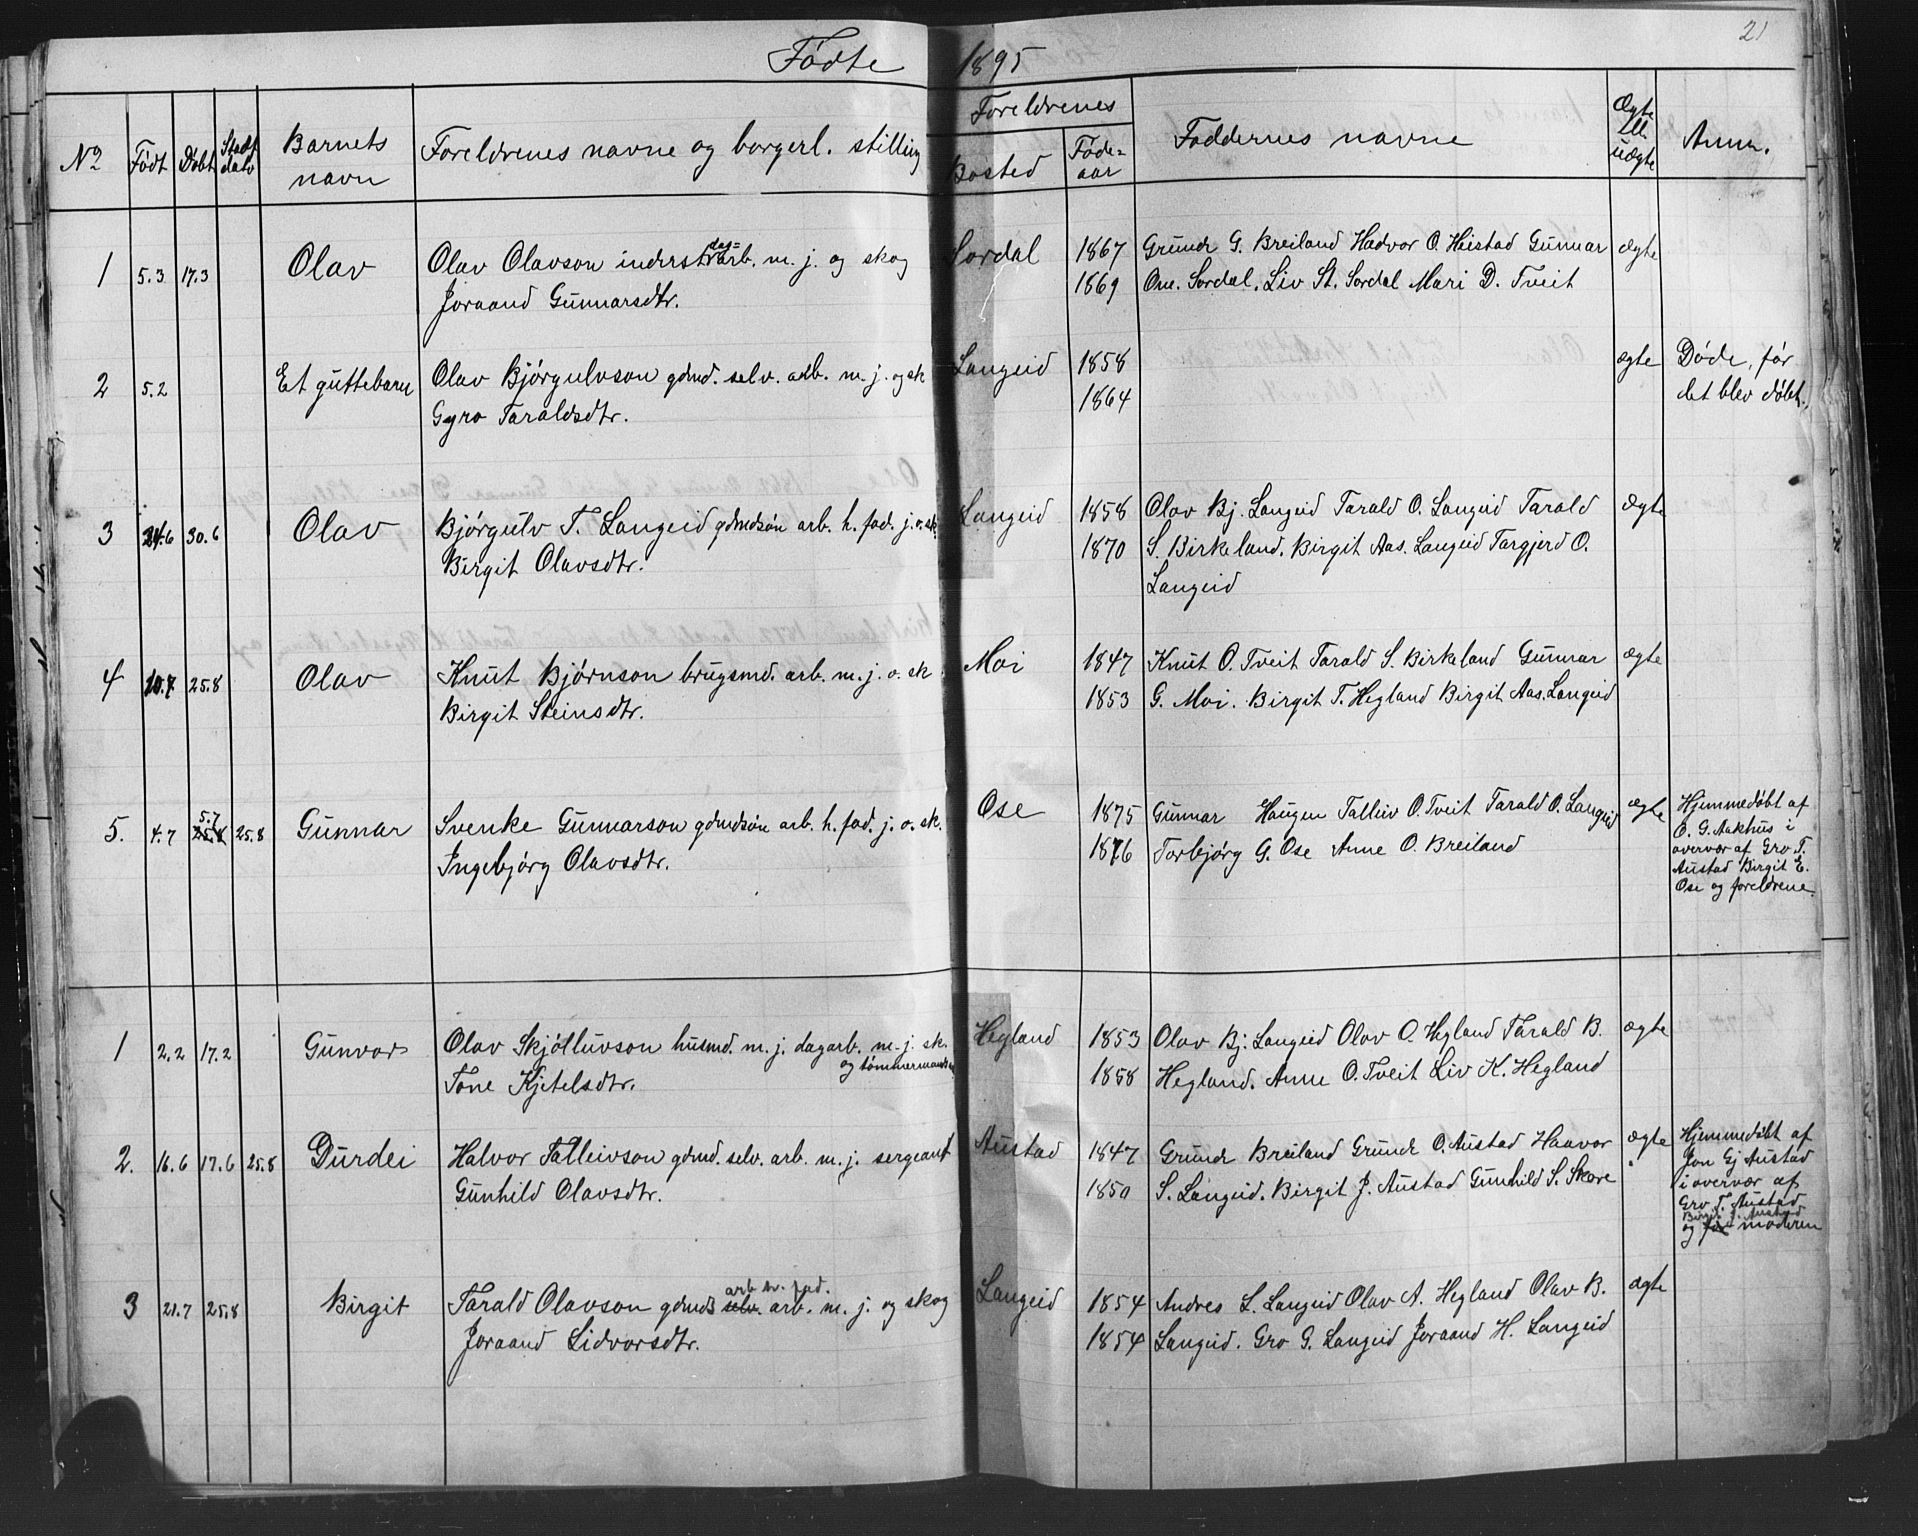 21
Fødte 1895
No Født Døbt Stadf. datο Barnets navn Foreldrenes navne og borgerl. stilling Foreldrenes Bosted Føde-aar Faddernes navne Ægte ell. uægte Anm.
1 5.3 17.3 Olav Olav Olavson inderst dag=arb. m. j. og skog Sordal 1867 Grunde G. Breiland Hadvor O. Heistad Gunnar ægte
Joraand Gunnarsdtr. 1869 One. Sordal. Liv St. Sordal Mari D. Tveit
2 5.2 Et guttebarn Olav Bjørgulvson gdmd. selv. arb. m. j. og sk Langeid 1858 ægte Døde, før
Gyro Taraldsdtr. 1864 det blev døbt.
3 24.6 30.6 Olav Bjørgulv T. Langeid gdmdsøn arb. h. fad. j. o. sk. Langeid 1858 Olav Bj. Langeid Tarald O. Langeid Tarald ægte
Birgit Olavsdtr. 1870 S. Birkeland. Birgit Aas. Langeid Targjerd O.
Langeid
4 10.7 25.8 Olav Knut Bjørnson brugsmd. arb. m. j. o. sk Moi 1847 Knut O. Tveit Tarald S. Birkeland Gunnar ægte
Birgit Steinsdtr. 1853 G. Moi. Birgit T. Hegland Birgit Aas. Langeid
5. 4.7 5.7 25.8 25.8 Gunnar Svenke Gunnarson gdmdsøn arb. h. fad. j. o. sk. Ose 1875 Gunnar Haugen Talluv O. Tveit Tarald O. Langeid ægte Hjemmedøbt af
Ingebjørg Olavsdtr. 1876 Torbjørg G. Ose Anne O. Breiland O. G. Aakhus i
overvær af Gro T.
Austad Birgit E.
Ose og foreldrene.
1 2.2 17.2 Gunvor Olav Skjølluvson husmd. m. j. dagarb. m. j. sk. Hegland 1853 Olav Bj. Langeid Olav O. Hegland Tarald B. ægte
og tømmermand
Tone Kjetelsdtr. 1858 Hegland. Anne O. Tveit Liv K. Hegland
2. 16.6 17.6 25.8 Durdei Halvor Talleivson gdmd. selv. arb. m. j. sergeant Austad 1847 Grunde Breiland Grunde O. Austad Haavor ægte Hjemmedøbt af
Gunhild Olavsdtr. 1850 S. Langeid. Birgit J. Austad Gunhild S. Skore Jon Gj Austad
i overvær af
Gro T. Austad
Birgit J. Austad
og for moderen
3 21.7 25.8 Birgit Tarald Olavson gdmds selv. arb. h. fad. arb. m. j. og skog Langeid 1854 Andres L. Langeid Olav A. Hegland Olav B. ægte
Joraand Lidvorsdtr. 1854 Langeid. Gro G. Langeid Joraand H. Langeid